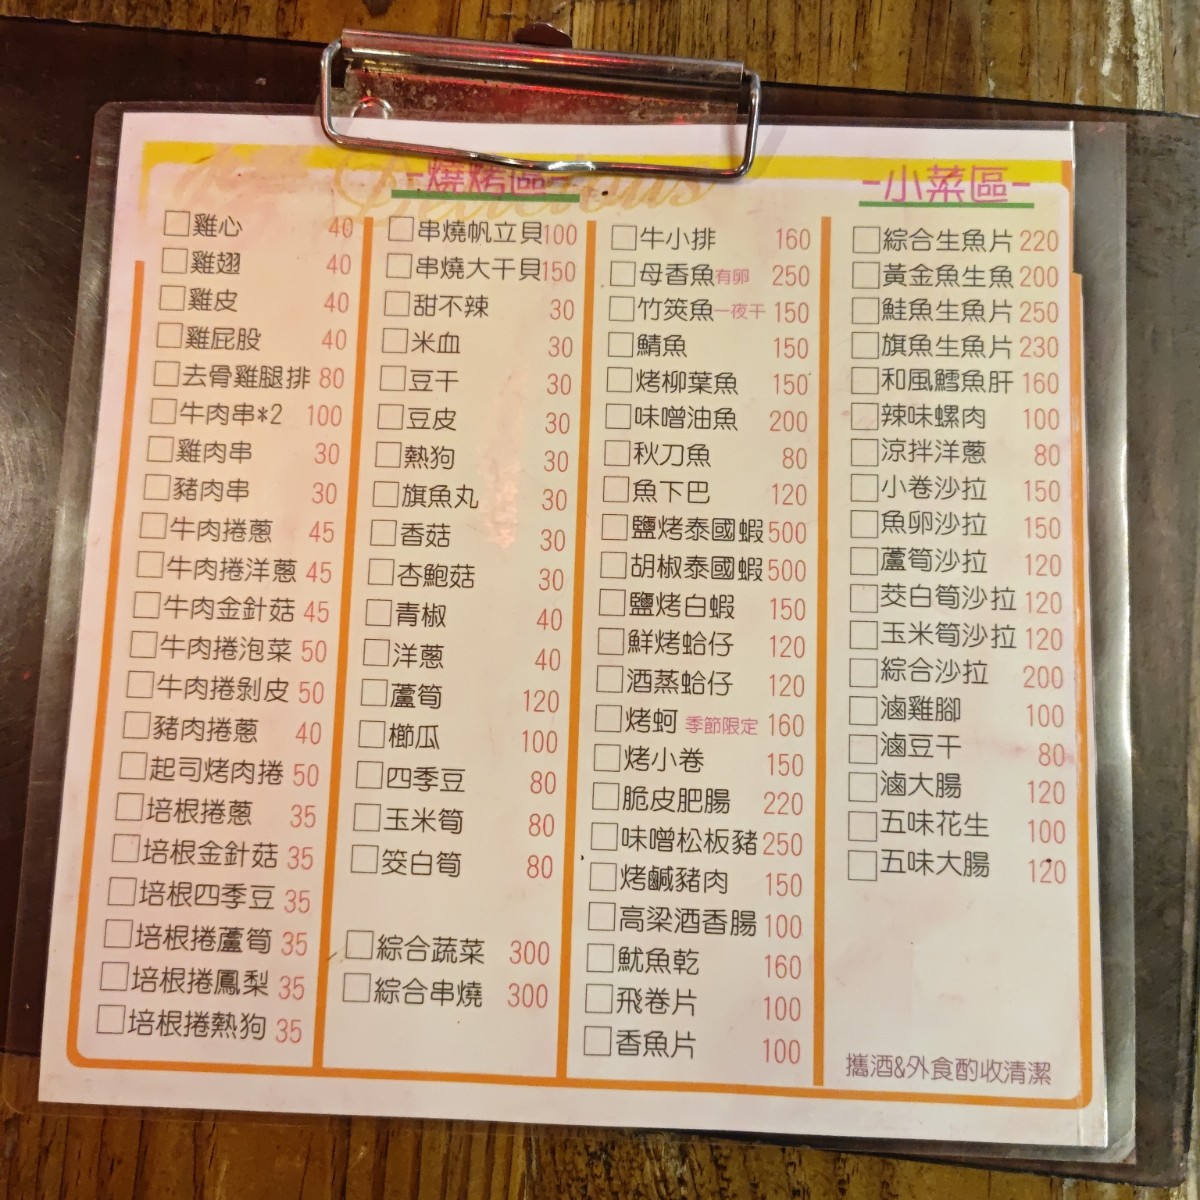 Delicious
-燒烤區-
雞心 40
雞翅 40
雞皮 40
雞屁股 40
去骨雞腿排 80
牛肉串*2 100
雞肉串 30
豬肉串 30
牛肉捲蔥 45
牛肉捲洋蔥 45
牛肉金針菇 45
牛肉捲泡菜 50
牛肉捲剝皮 50
豬肉捲蔥 40
起司烤肉捲 50
培根捲蔥 35
培根金針菇 35
培根四季豆 35
培根捲蘆筍 35
培根捲鳳梨 35
培根捲熱狗 35
串燒帆立貝 100
串燒大干貝 150
甜不辣 30
米血 30
豆干 30
豆皮 30
熱狗 30
旗魚丸 30
香菇 30
杏鮑菇 30
青椒 40
洋蔥 40
蘆筍 120
櫛瓜 100
四季豆 80
玉米筍 80
筊白筍 80
綜合蔬菜 300
綜合串燒 300
牛小排 160
母香魚有卵 250
竹筴魚一夜干 150
鯖魚 150
烤柳葉魚 150
味噌油魚 200
秋刀魚 80
魚下巴 120
鹽烤泰國蝦 500
胡椒泰國蝦 500
鹽烤白蝦 150
鮮烤蛤仔 120
酒蒸蛤仔 120
烤蚵 季節限定 160
烤小卷 150
脆皮肥腸 220
味噌松板豬 250
烤鹹豬肉 150
高梁酒香腸 100
魷魚乾 160
飛卷片 100
香魚片 100
-小菜區-
綜合生魚片 220
黃金魚生魚 200
鮭魚生魚片 250
旗魚生魚片 230
和風鱈魚肝 160
辣味螺肉 100
涼拌洋蔥 80
小卷沙拉 150
魚卵沙拉 150
蘆筍沙拉 120
茭白筍沙拉 120
玉米筍沙拉 120
綜合沙拉 200
滷雞腳 100
滷豆干 80
滷大腸 120
五味花生 100
五味大腸 120
攜酒&外食酌收清潔